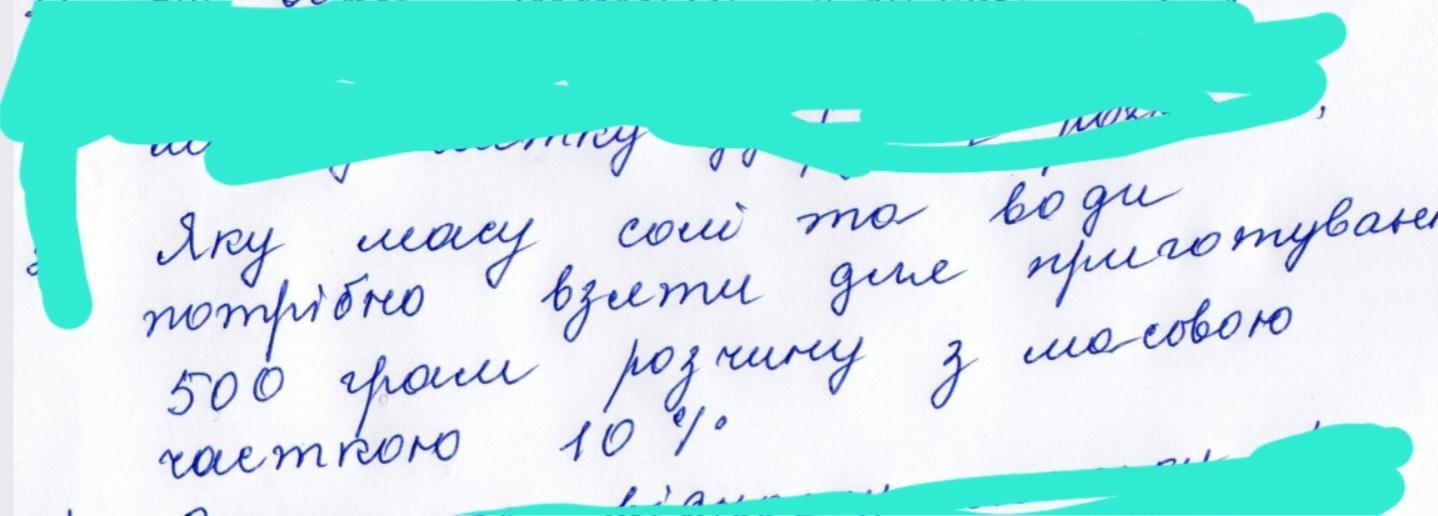 Яку масу солі та води
потрібно взяти для приготуван
500 грам розчину з масовою
часткою 10 %